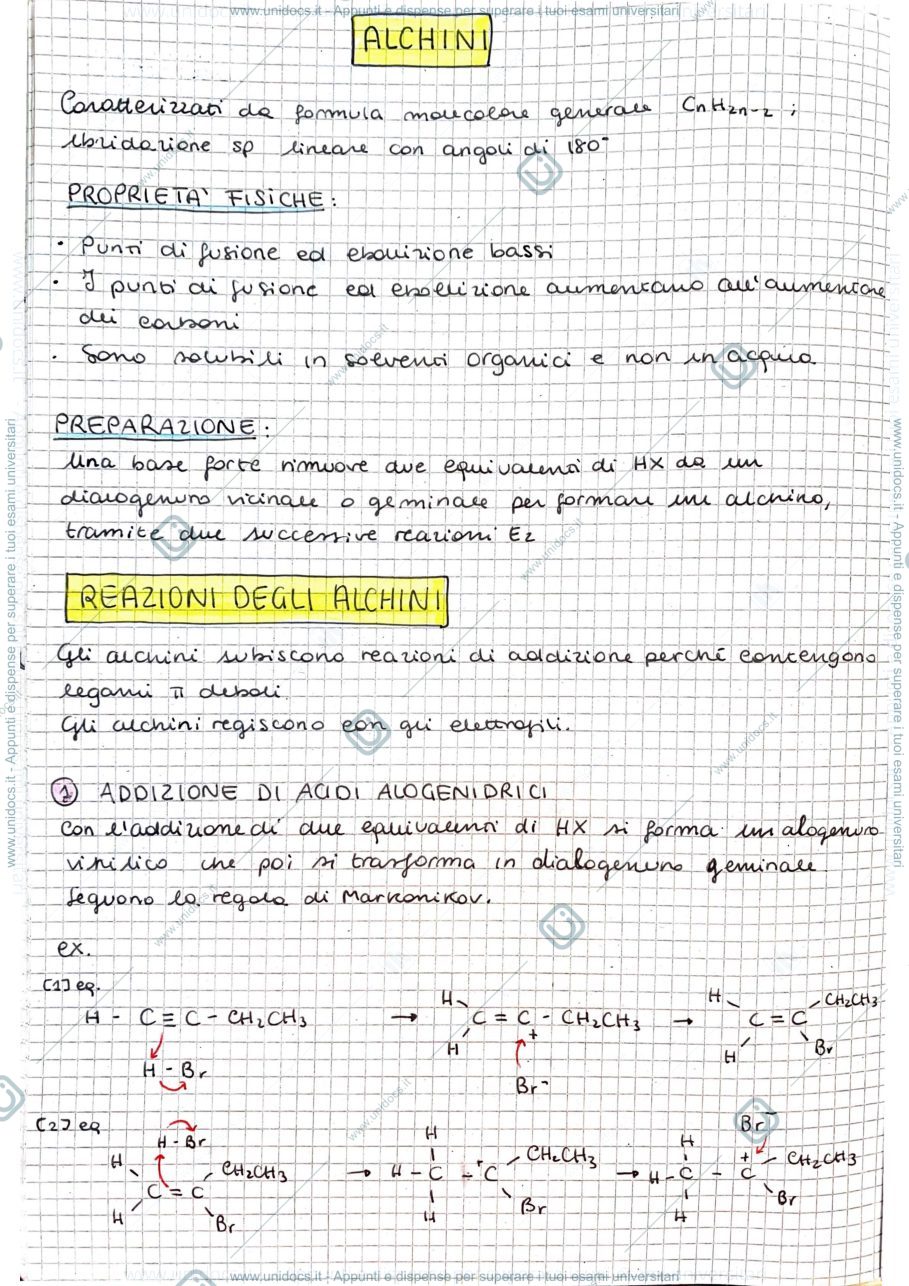 www.unidocs.it - Appunti e dispense per superare i tuoi esami universitari
ALCHINI
Caratterizzati da formula molecolare generale CnH2n-2 ;
ibridazione sp lineare con angoli di 180°
PROPRIETA' FISICHE :
• Punti di fusione ed ebollizione bassi
• I punti di fusione ed ebollizione aumentano all'aumentare
dei carboni
• Sono solubili in solventi organici e non in acqua
PREPARAZIONE :
Una base forte rimuove due equivalenti di HX da un
dialogenuro vicinale o geminale per formare un alchino,
tramite due successive reazioni E2
REAZIONI DEGLI ALCHINI
Gli alchini subiscono reazioni di addizione perché contengono
legami π deboli.
Gli alchini regiscono con gli elettrofili.
1 ADDIZIONE DI ACIDI ALOGENIDRICI
Con l'addizione di due equivalenti di HX si forma un alogenuro
vinilico che poi si trasforma in dialogenuro geminale
Seguono la regola di Markonikov.
ex.
[1] eq.
H - C ≡ C - CH2CH3 → H H C = C + - CH2CH3 → H H C = C CH2CH3 Br
H - Br
Br-
[2] eq
H - Br
H H C = C CH2CH3 Br → H - C H H - C + CH2CH3 Br → H - C H H - C + CH2CH3 Br
Br-
www.unidocs.it - Appunti e dispense per superare i tuoi esami universitari